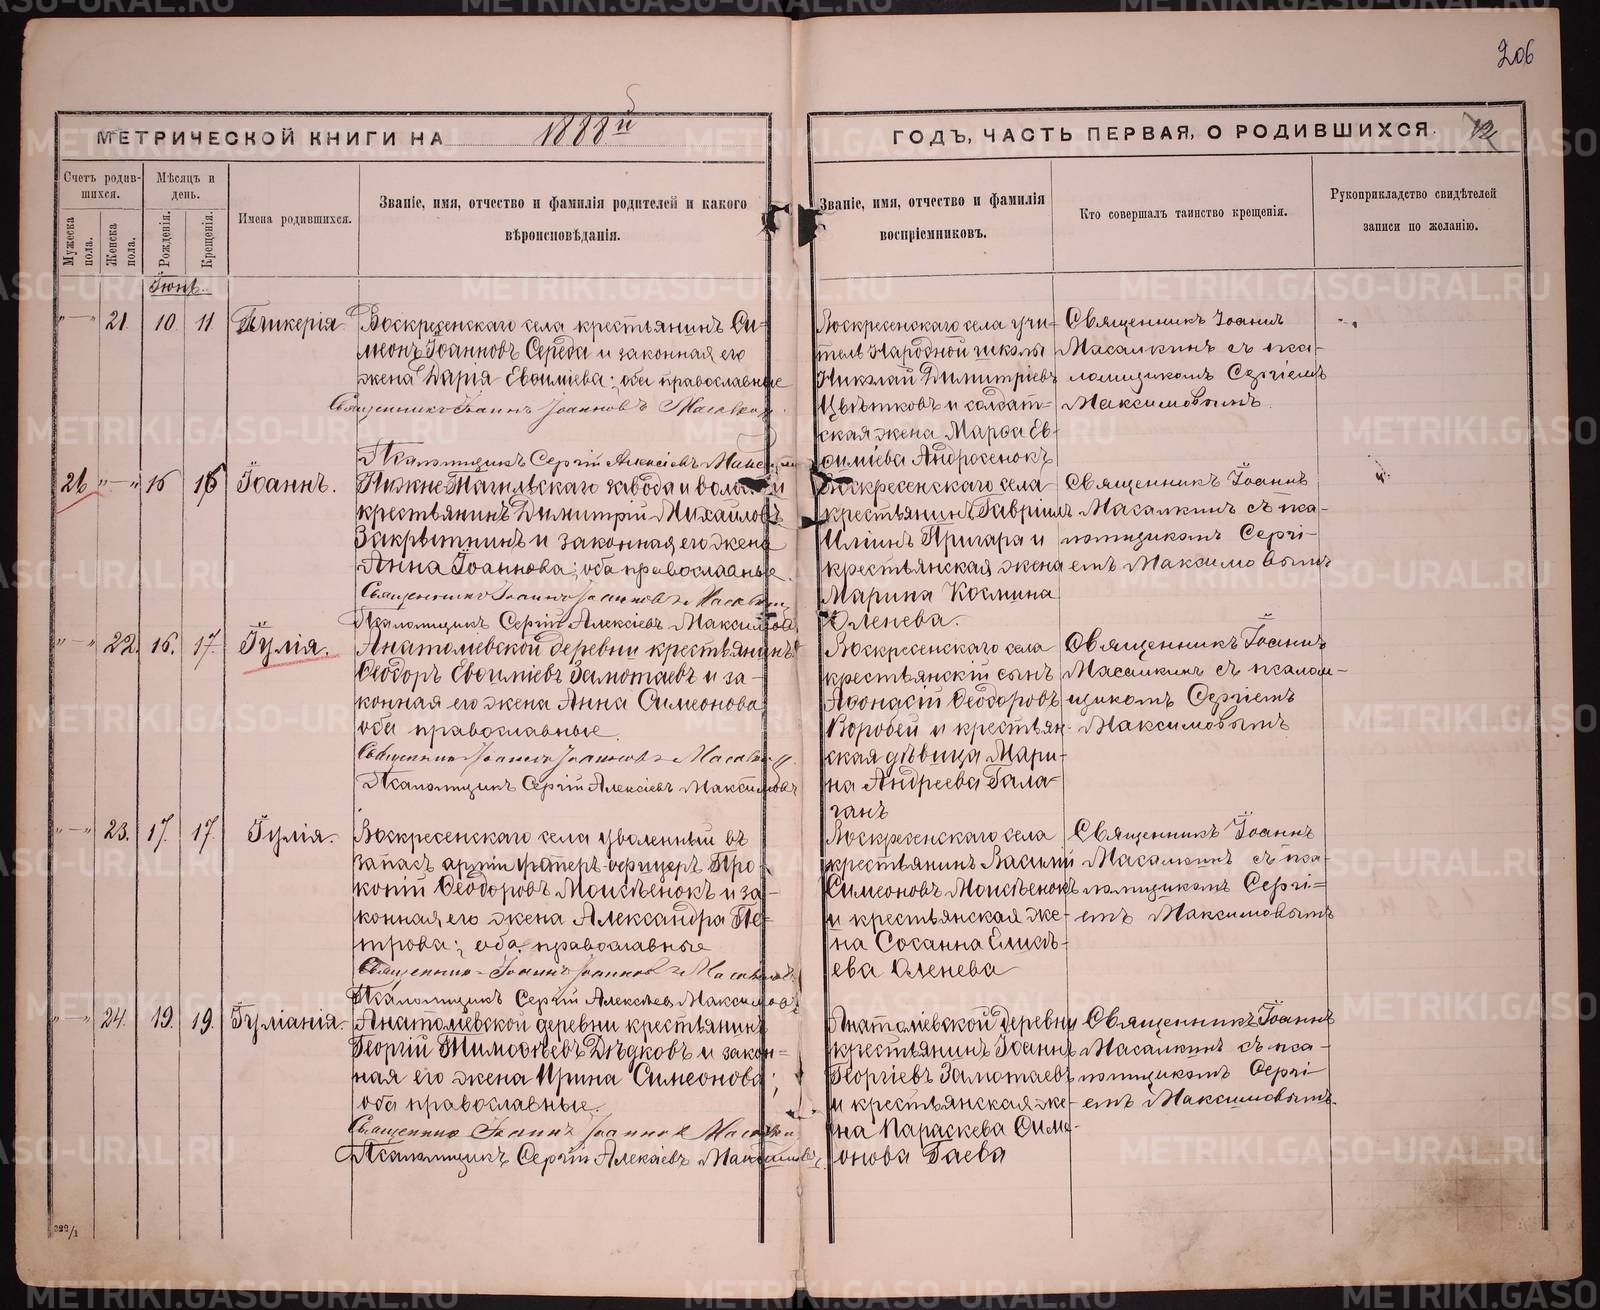 206
МЕТРИЧЕСКОЙ КНИГИ НА 1888й ГОДЪ, ЧАСТЬ ПЕРВАЯ, О РОДИВШИХСЯ. 12
Счетъ родив-
шихся.
Мужеска пола.
Женска пола.
Мѣсяцъ и
день.
Рожденія.
Крещенія.
Имена родившихся.
Званіе, имя, отчество и фамилія родителей и какого
вѣроисповѣданія.
Званіе, имя, отчество и фамилія
воспріемниковъ.
Кто совершалъ таинство крещенія.
Рукоприкладство свидѣтелей
записи по желанію.
Іюнь.
"—" 21. 10 11 Гликерія
Воскресенскаго села крестьянинъ Си-
меонъ Іоанновъ Середа и законная его
жена Дарія Евѳиміева; оба православные
Священникъ Іоаннъ Іоанновъ Масалкинъ
Псаломщикъ Сергій Алексіевъ
Воскресенскаго села учи-
тель Народной школы
Николай Димитріевъ
Цвѣтковъ и солдат-
ская жена Марѳа Ев-
ѳиміева Андросенокъ
Священникъ Іоаннъ
Масалкинъ съ пса-
ломщикомъ Сергіемъ
Максимовымъ.
26 "—" 15 16 Іоаннъ.
Нижне-Тагильскаго завода и волости
крестьянинъ Димитрій Михайловъ
Закрѣтнинъ и законная его жена
Анна Іоаннова; оба православные.
Священникъ Іоаннъ Іоанновъ Масалкинъ
Псаломщикъ Сергій Алексіевъ Максимовъ
Воскресенскаго села
крестьянинъ Гавріилъ
Иліинъ Пригара и
крестьянская жена
Марина Космина
Оленева.
Священникъ Іоаннъ
Масалкинъ съ пса-
ломщикомъ Сергі-
емъ Максимовымъ
"—" 22. 16. 17. Іулія.
Анатоліевской деревни крестьянинъ
Ѳеодоръ Евѳиміевъ Замотаевъ и за-
конная его жена Анна Симеонова
оба православные.
Священникъ Іоаннъ Іоанновъ Масалкинъ
Псаломщикъ Сергій Алексіевъ Максимовъ
Воскресенскаго села
крестьянскій сынъ
Аѳонасій Ѳеодоровъ
Воробей и крестьян-
ская дѣвица Мари-
на Андреева Гала-
ганъ
Священникъ Іоаннъ
Масалкинъ съ псалом-
щикомъ Сергіемъ
Максимовымъ
"—" 23. 17. 17. Іулія.
Воскресенскаго села уволенный въ
запасъ арміи унтеръ-офицеръ Про-
копій Ѳеодоровъ Моисѣенокъ и за-
конная его жена Александра Пе-
трова; оба православные
Священникъ Іоаннъ Іоанновъ Масалкинъ
Псаломщикъ Сергій Алексѣевъ Максимовъ
Воскресенскаго села
крестьянинъ Василій
Симеоновъ Моисѣенокъ
и крестьянская же-
на Сосанна Елисѣ-
ева Оленева
Священникъ Іоаннъ
Масалкинъ съ пса-
ломщикомъ Сергі-
емъ Максимовымъ
"—" 24. 19. 19. Іуліанія.
Анатоліевской деревни крестьянинъ
Георгій Тимоѳѣевъ Дѣдковъ и закон-
ная его жена Ирина Симеонова;
оба православные.
Священникъ Іоаннъ Іоанновъ Масалкинъ
Псаломщикъ Сергій Алексіевъ Максимовъ
Анатоліевской деревни
крестьянинъ Іоаннъ
Георгіевъ Замотаевъ
и крестьянская же-
на Параскева Симе-
онова Гаева
Священникъ Іоаннъ
Масалкинъ съ пса-
ломщикомъ Сергі-
емъ Максимовымъ.
METRIKI.GASO-URAL.RU